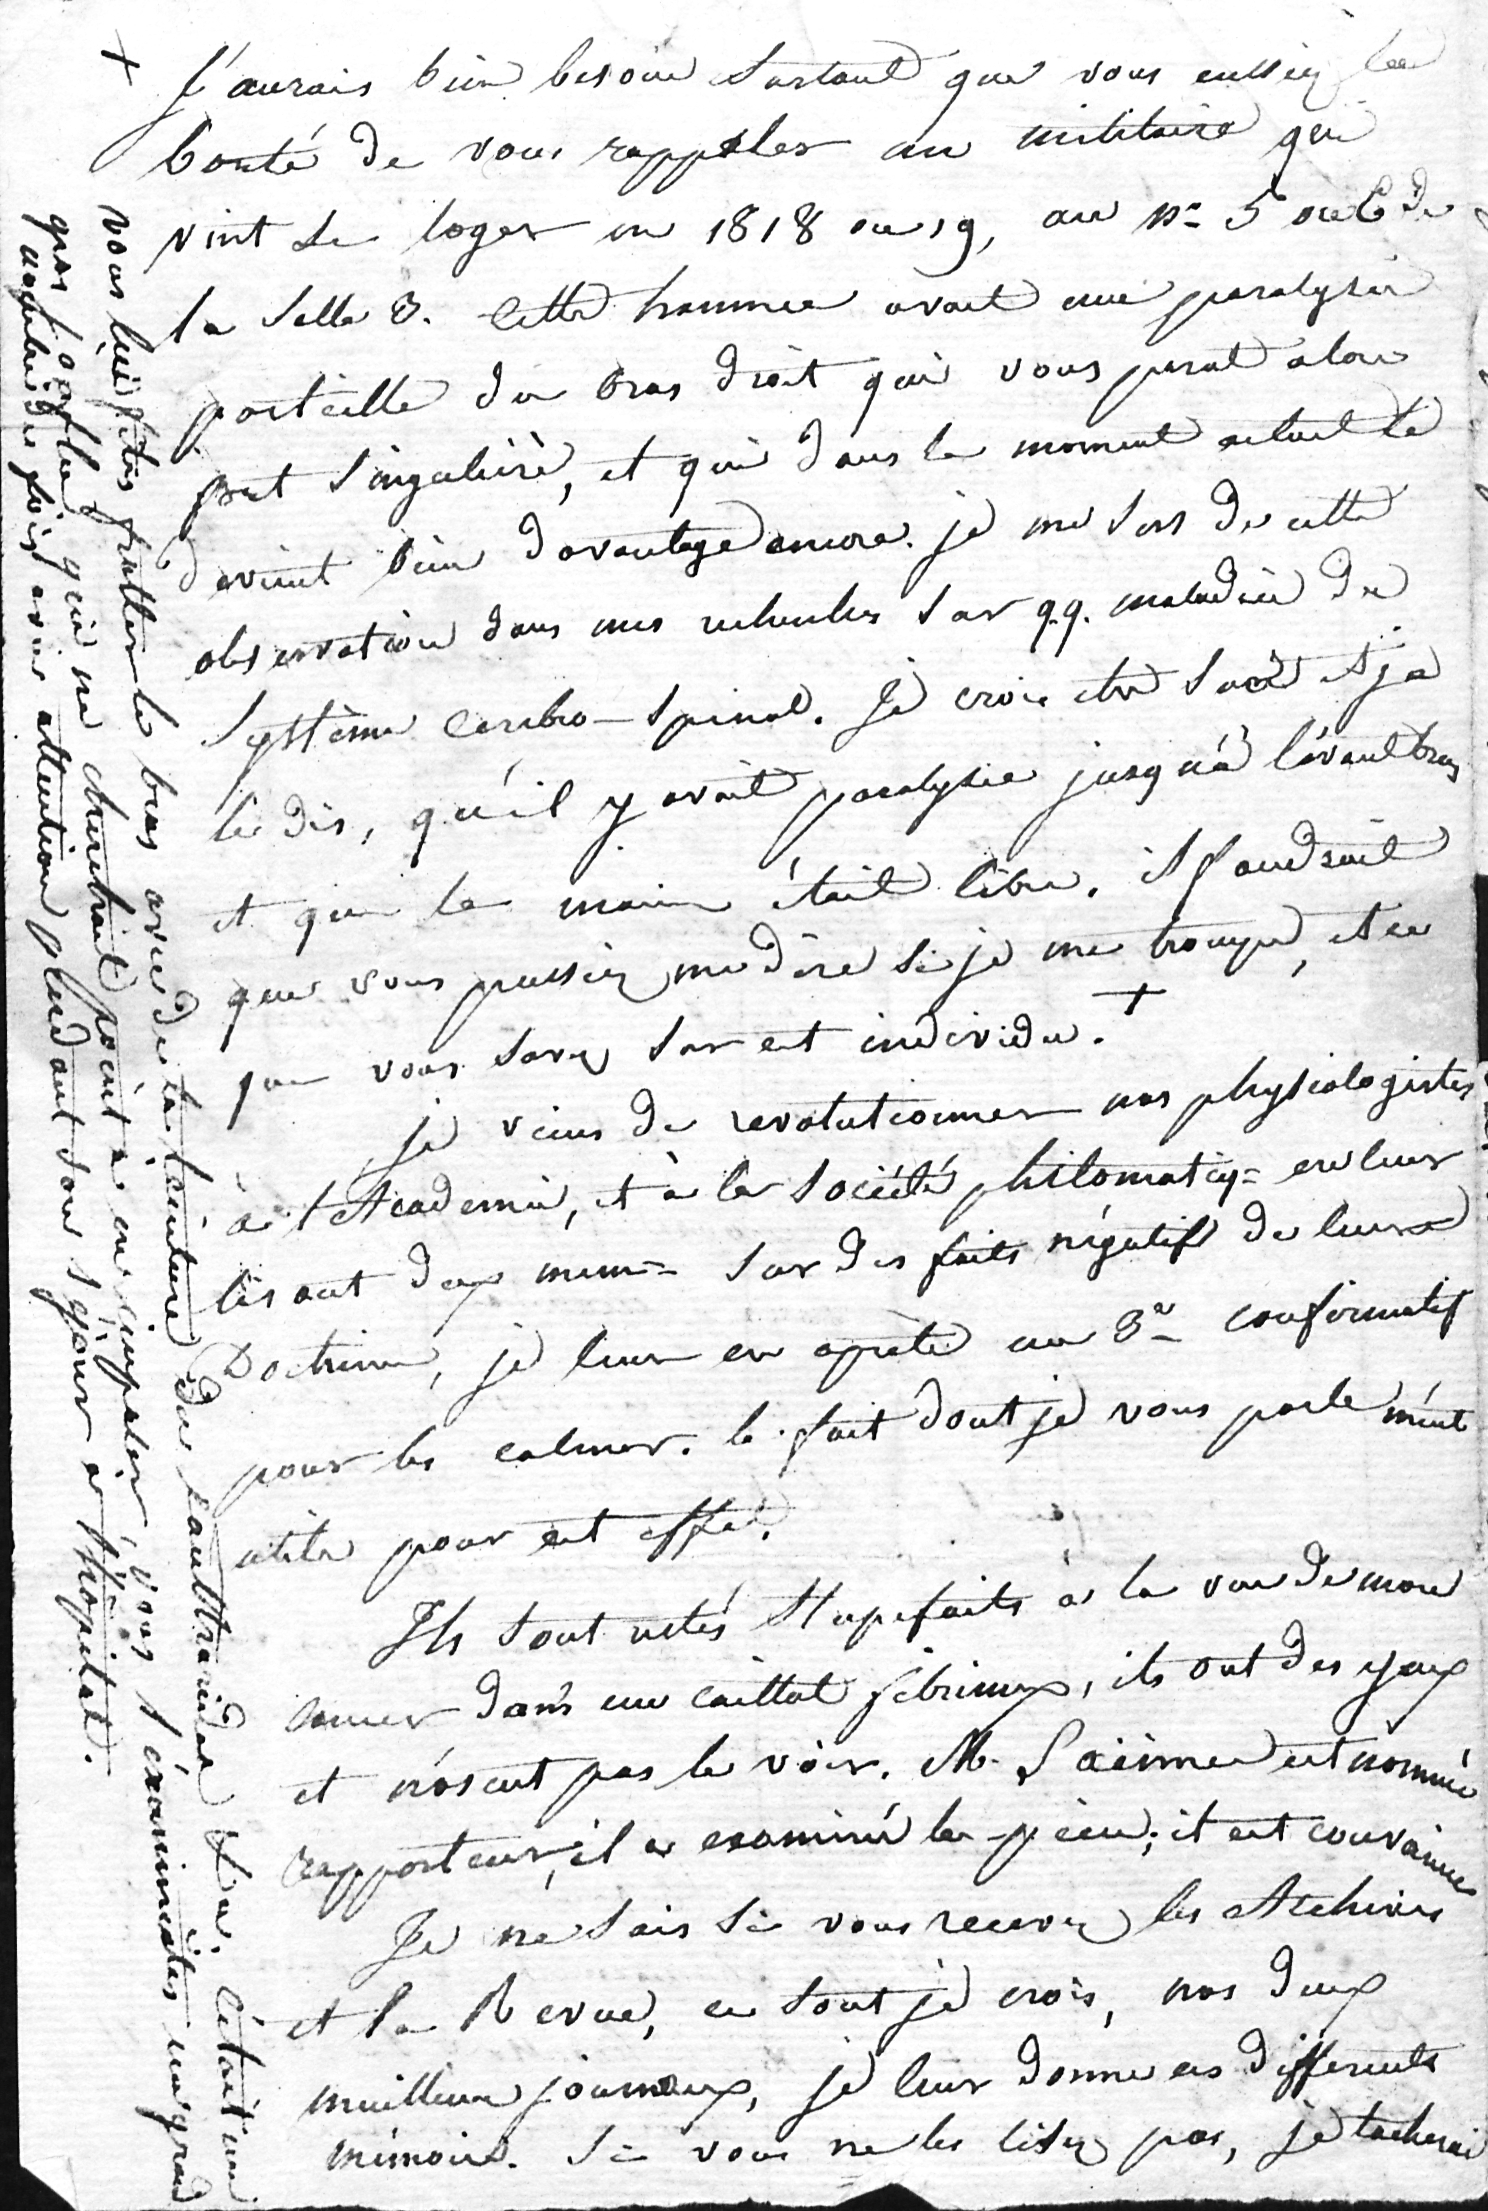 + J'aurais bien besoin surtout que vous eussiez la
bonté de vous rappeler un militaire qui
vint se loger en 1818 ou 19, au n° 5 ou 6 de
la Salle 3. Cette homme avait une paralysie
partielle du bras droit qui vous parut alors
fort singulière, et qui dans le moment actuel le
devient bien davantage encore. je me sers de cette
observation dans mes recherches sur q.q. maladies du
système cerebro-spinal. Je crois être sûr et je
le dis, qu'il y avait paralysie jusqu'à l'avant bras
et que la main était libre. il faudrait
que vous pussiez me dire si je me trompe, et ce
que vous savez sur cet individu. +
je viens de revolutionner nos physiologistes
à l'Academie, et à la Société philomatiq= en leur
lisant deux mem= sur des faits négatifs de leur
Doctrine, je leur en aprète un 3e confirmatif
pour les calmer. le fait dont je vous parle m'est
utile pour cet effet.
Ils sont restés stupefaits à la vue de mon
dans un caillot fibrineux, ils ont des yeux
et n'osent pas le voir. M. est nommé
rapporteur, il a examiné la pièce; il est convaincu
Je ne sais si vous recevez les Archives
et la Revue, ce sont je crois, nos deux
meilleurs journaux, je leur donne ces differents
mémoires. Si vous ne les lisez pas, je tacherai
vous lui fites frotter le bras avec de la teinture de cantharides c'était un
gros qui ne cherchait point à en imposer, vous l'examinates un grand
nombre de fois avec attention pendant son séjour à l'hopital.